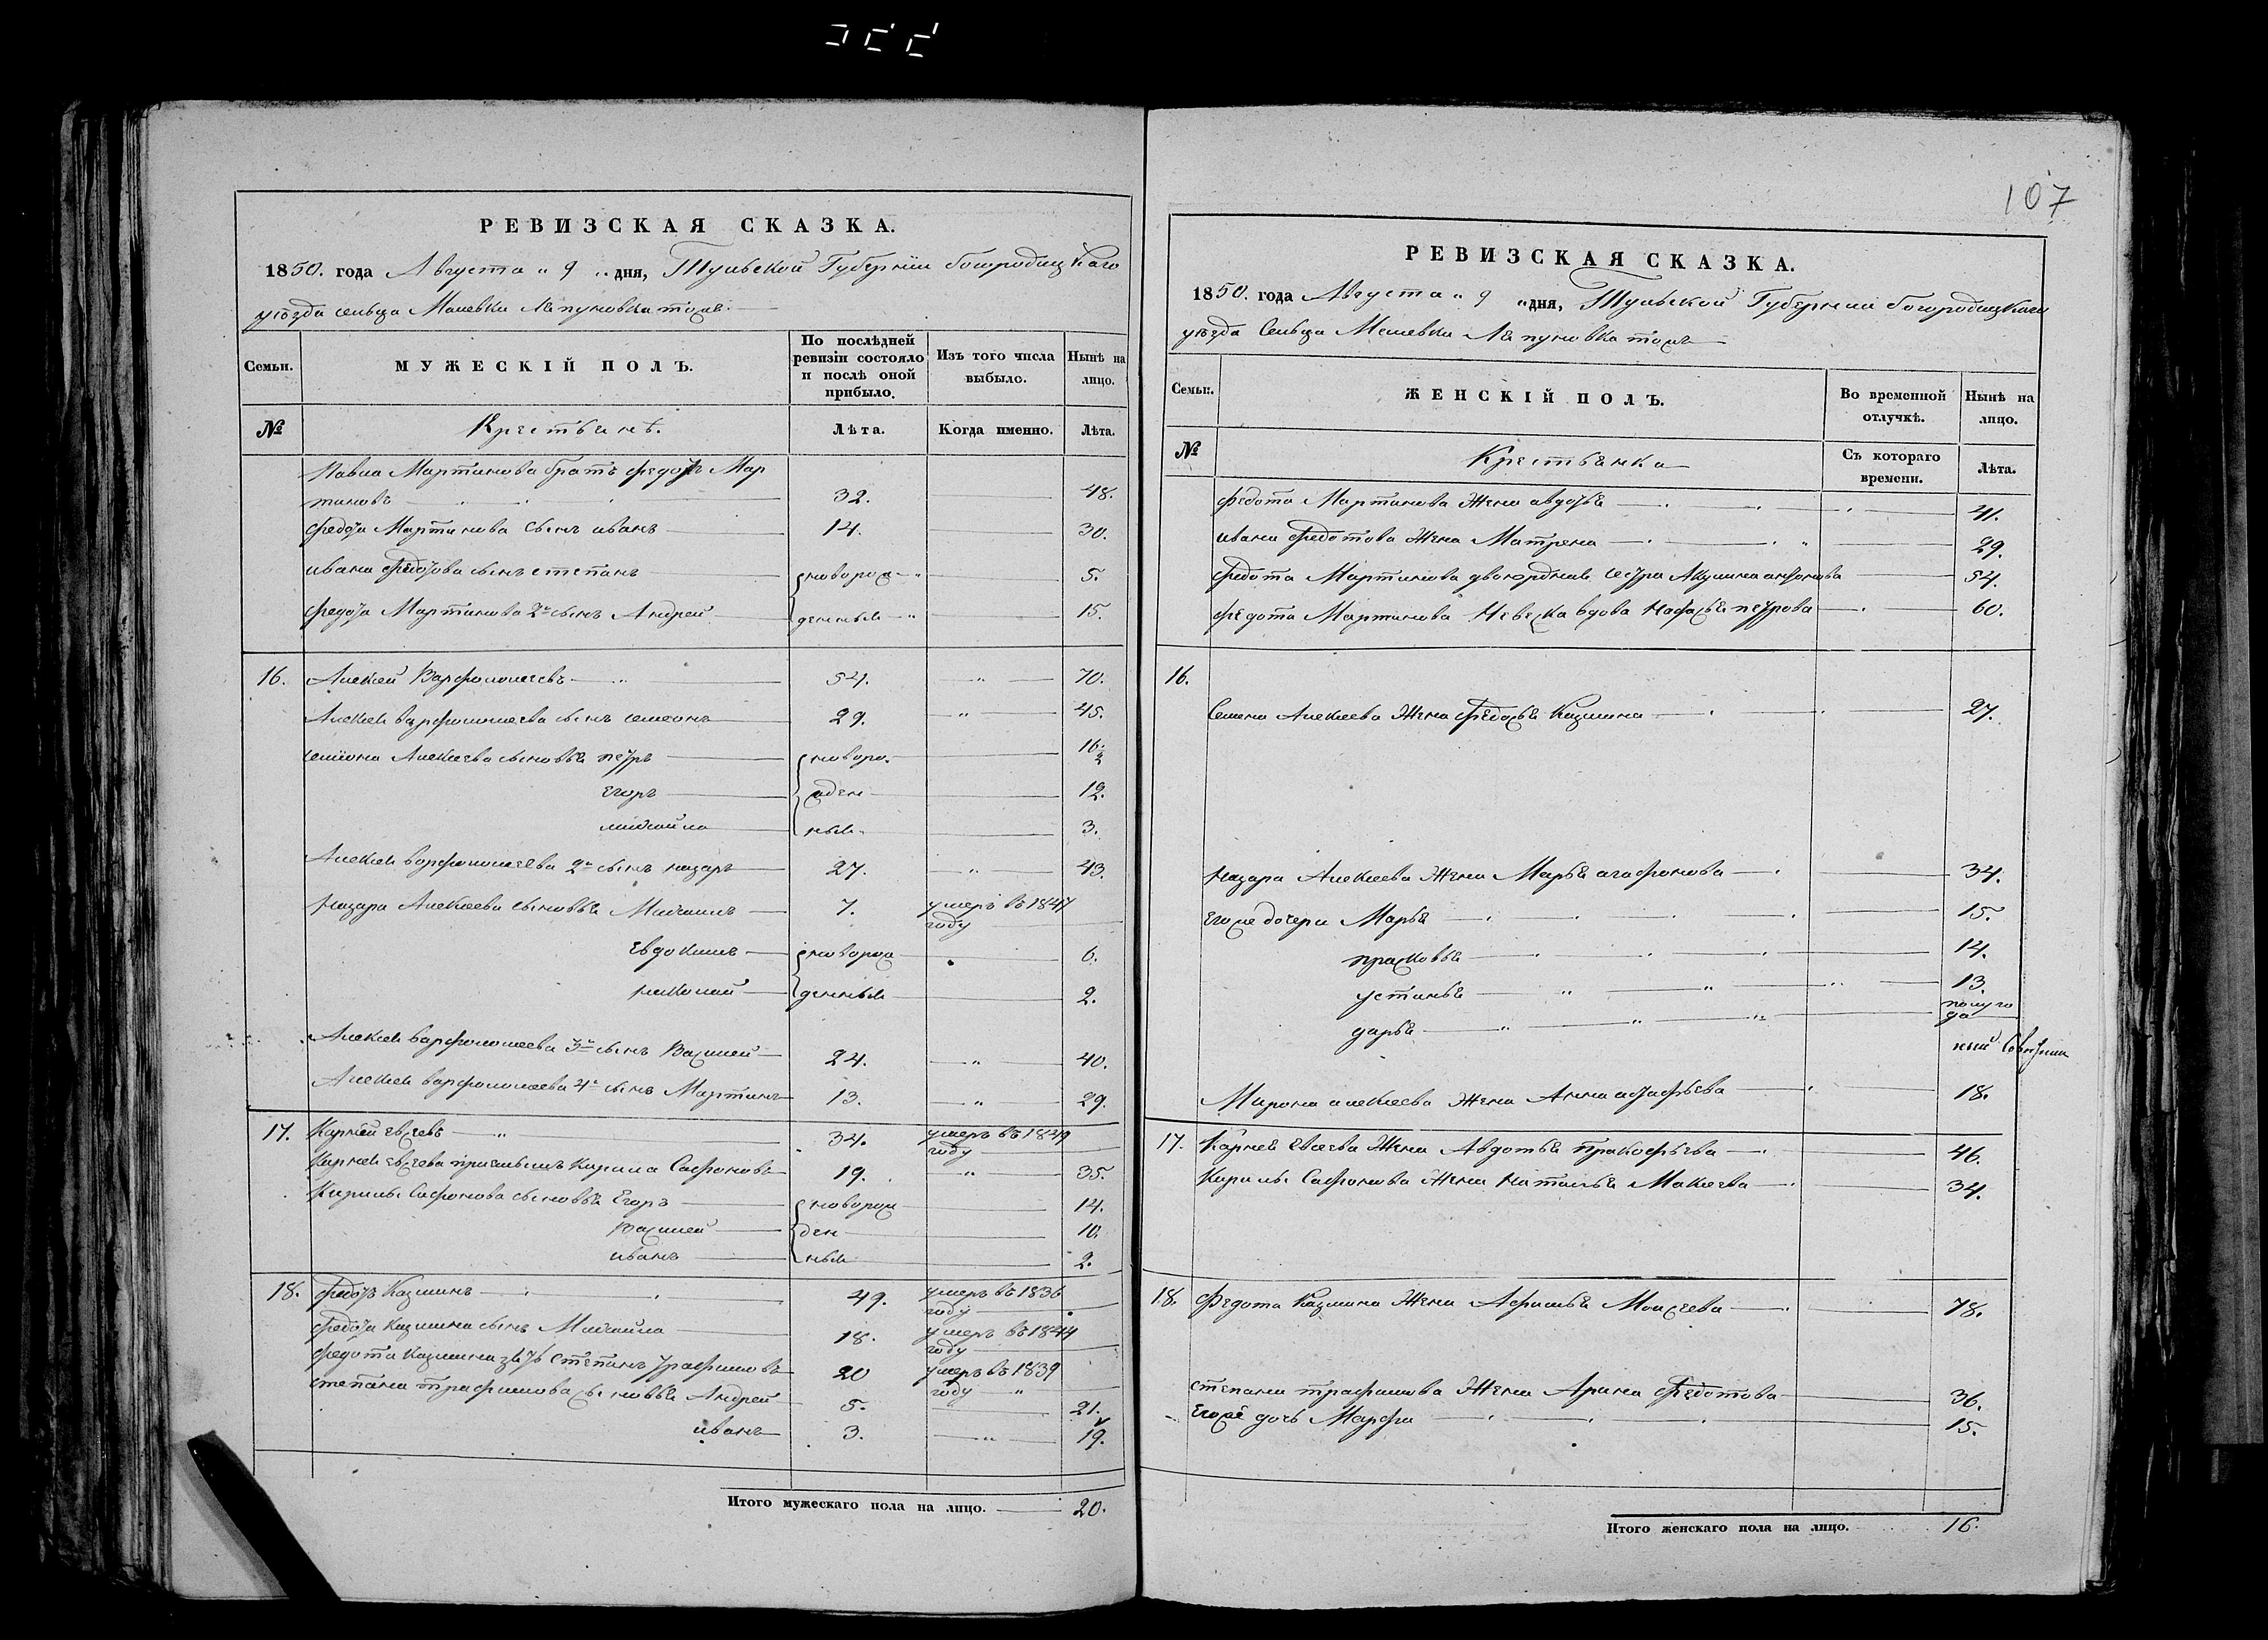 107
РЕВИЗСКАЯ СКАЗКА.
1850. года Августа „ 9 „ дня, Тульской Губерніи богородицкаго
уѣзда сельца
Семьи.
МУЖЕСКІЙ ПОЛЪ.
По послѣдней ревизіи состояло и послѣ оной прибыло.
Изъ того числа выбыло.
Нынѣ на лицо.
№
Крестьянѣ.
Лѣта.
Когда именно.
Лѣта.
Павла Мартинова братъ Федотъ Мар
тиновъ 32. 48.
Федота Мартинова сынъ иванъ 14. 30.
ивана Федотова сынъ степанъ новорож 5.
Федота Мартинова 2й сынъ Андрей денныи 15.
16. Алексей Варфоломеевъ 54. 70.
Алексея варфоломеева сынъ семионъ 29. 45.
семиона Алексеева сыновья петръ новоро. 16 1/2
Егоръ жден 12.
михайла ныи 3.
Алексея варфоломеева 2й сынъ назаръ 27. 43.
назара Алексеева сыновья Михаилъ 7. умеръ въ 1847
году
Евдокимъ новорож 6.
николай денныи 2.
Алексея варфоломеева 3й сынъ Василей 24. 40.
Алексея варфоломеева 4й сынъ Мартинъ 13. 29.
17. Карней евсеевъ 34. умеръ въ 1849
году
Карнея евсеева приемышъ Кирила Сафоновъ 19. 35.
Кирилы Сафонова сыновья Егоръ новорож 14.
Василей ден 10.
иванъ ныи 2.
18. Федотъ Казминъ 49. умеръ въ 1836
году
Федота Казмина сынъ Михайла 18. умеръ въ 1844
году
Федота Казмина зять степанъ трафимовъ 20 умеръ въ 1839
году
степана трафимова сыновья Андрей 5. 21.
иванъ 3. 19.
Итого мужескаго пола на лицо. 20.
РЕВИЗСКАЯ СКАЗКА.
1850. года Августа „ 9 „ дня, Тульской Губерніи богородицкаго
уѣзда Сельца
Семьи.
ЖЕНСКІЙ ПОЛЪ.
Во временной отлучкѣ.
Нынѣ на лицо.
№
Крестьянка
Съ котораго времени.
Лѣта.
Федота Мартинова Жена авдотья 41.
ивана Федотова Жена Матрена 29.
Федота Мартинова двоюрдная сестра Акулина 54.
Федота Мартинова Невеска вдова петрова 60.
16.
Семена Алексеева Жена Федосья Казмина 27.
Назара Алексеева Жена Марья агафонова 34.
Егоже дочери Марья 15.
прасковья 14.
устинья 13.
дарья полуго
да
Мирона алексеева Жена Анна 18.
17. Карнея Евсеева Жена Авдотья пракофьева 46.
Кирилы Сафонова Жена Наталья Макеева 34.
18. Федота Казмина Жена Афимья Моисеева 78.
степана трафимова Жена Арина Федотова 36.
Егоже дочь Марфа 15.
Итого женскаго пола на лицо. 16.